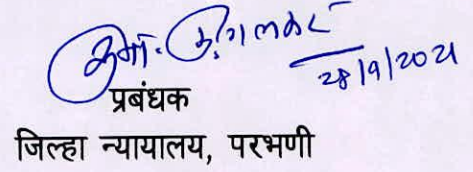 28/9/2021
प्रबंधक
जिल्हा न्यायालय, परभणी